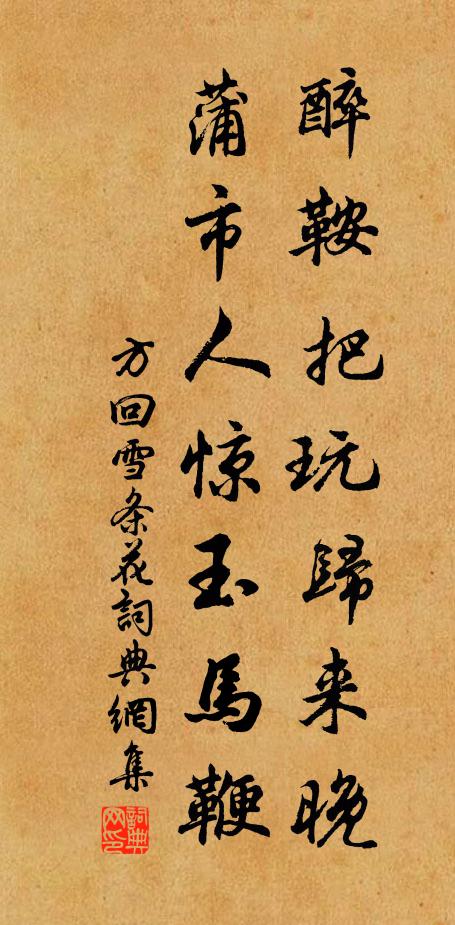 醉鞍把玩歸来晚
蒲市人惊玉馬鞭
方回雪条花詞典網集
詞典网印